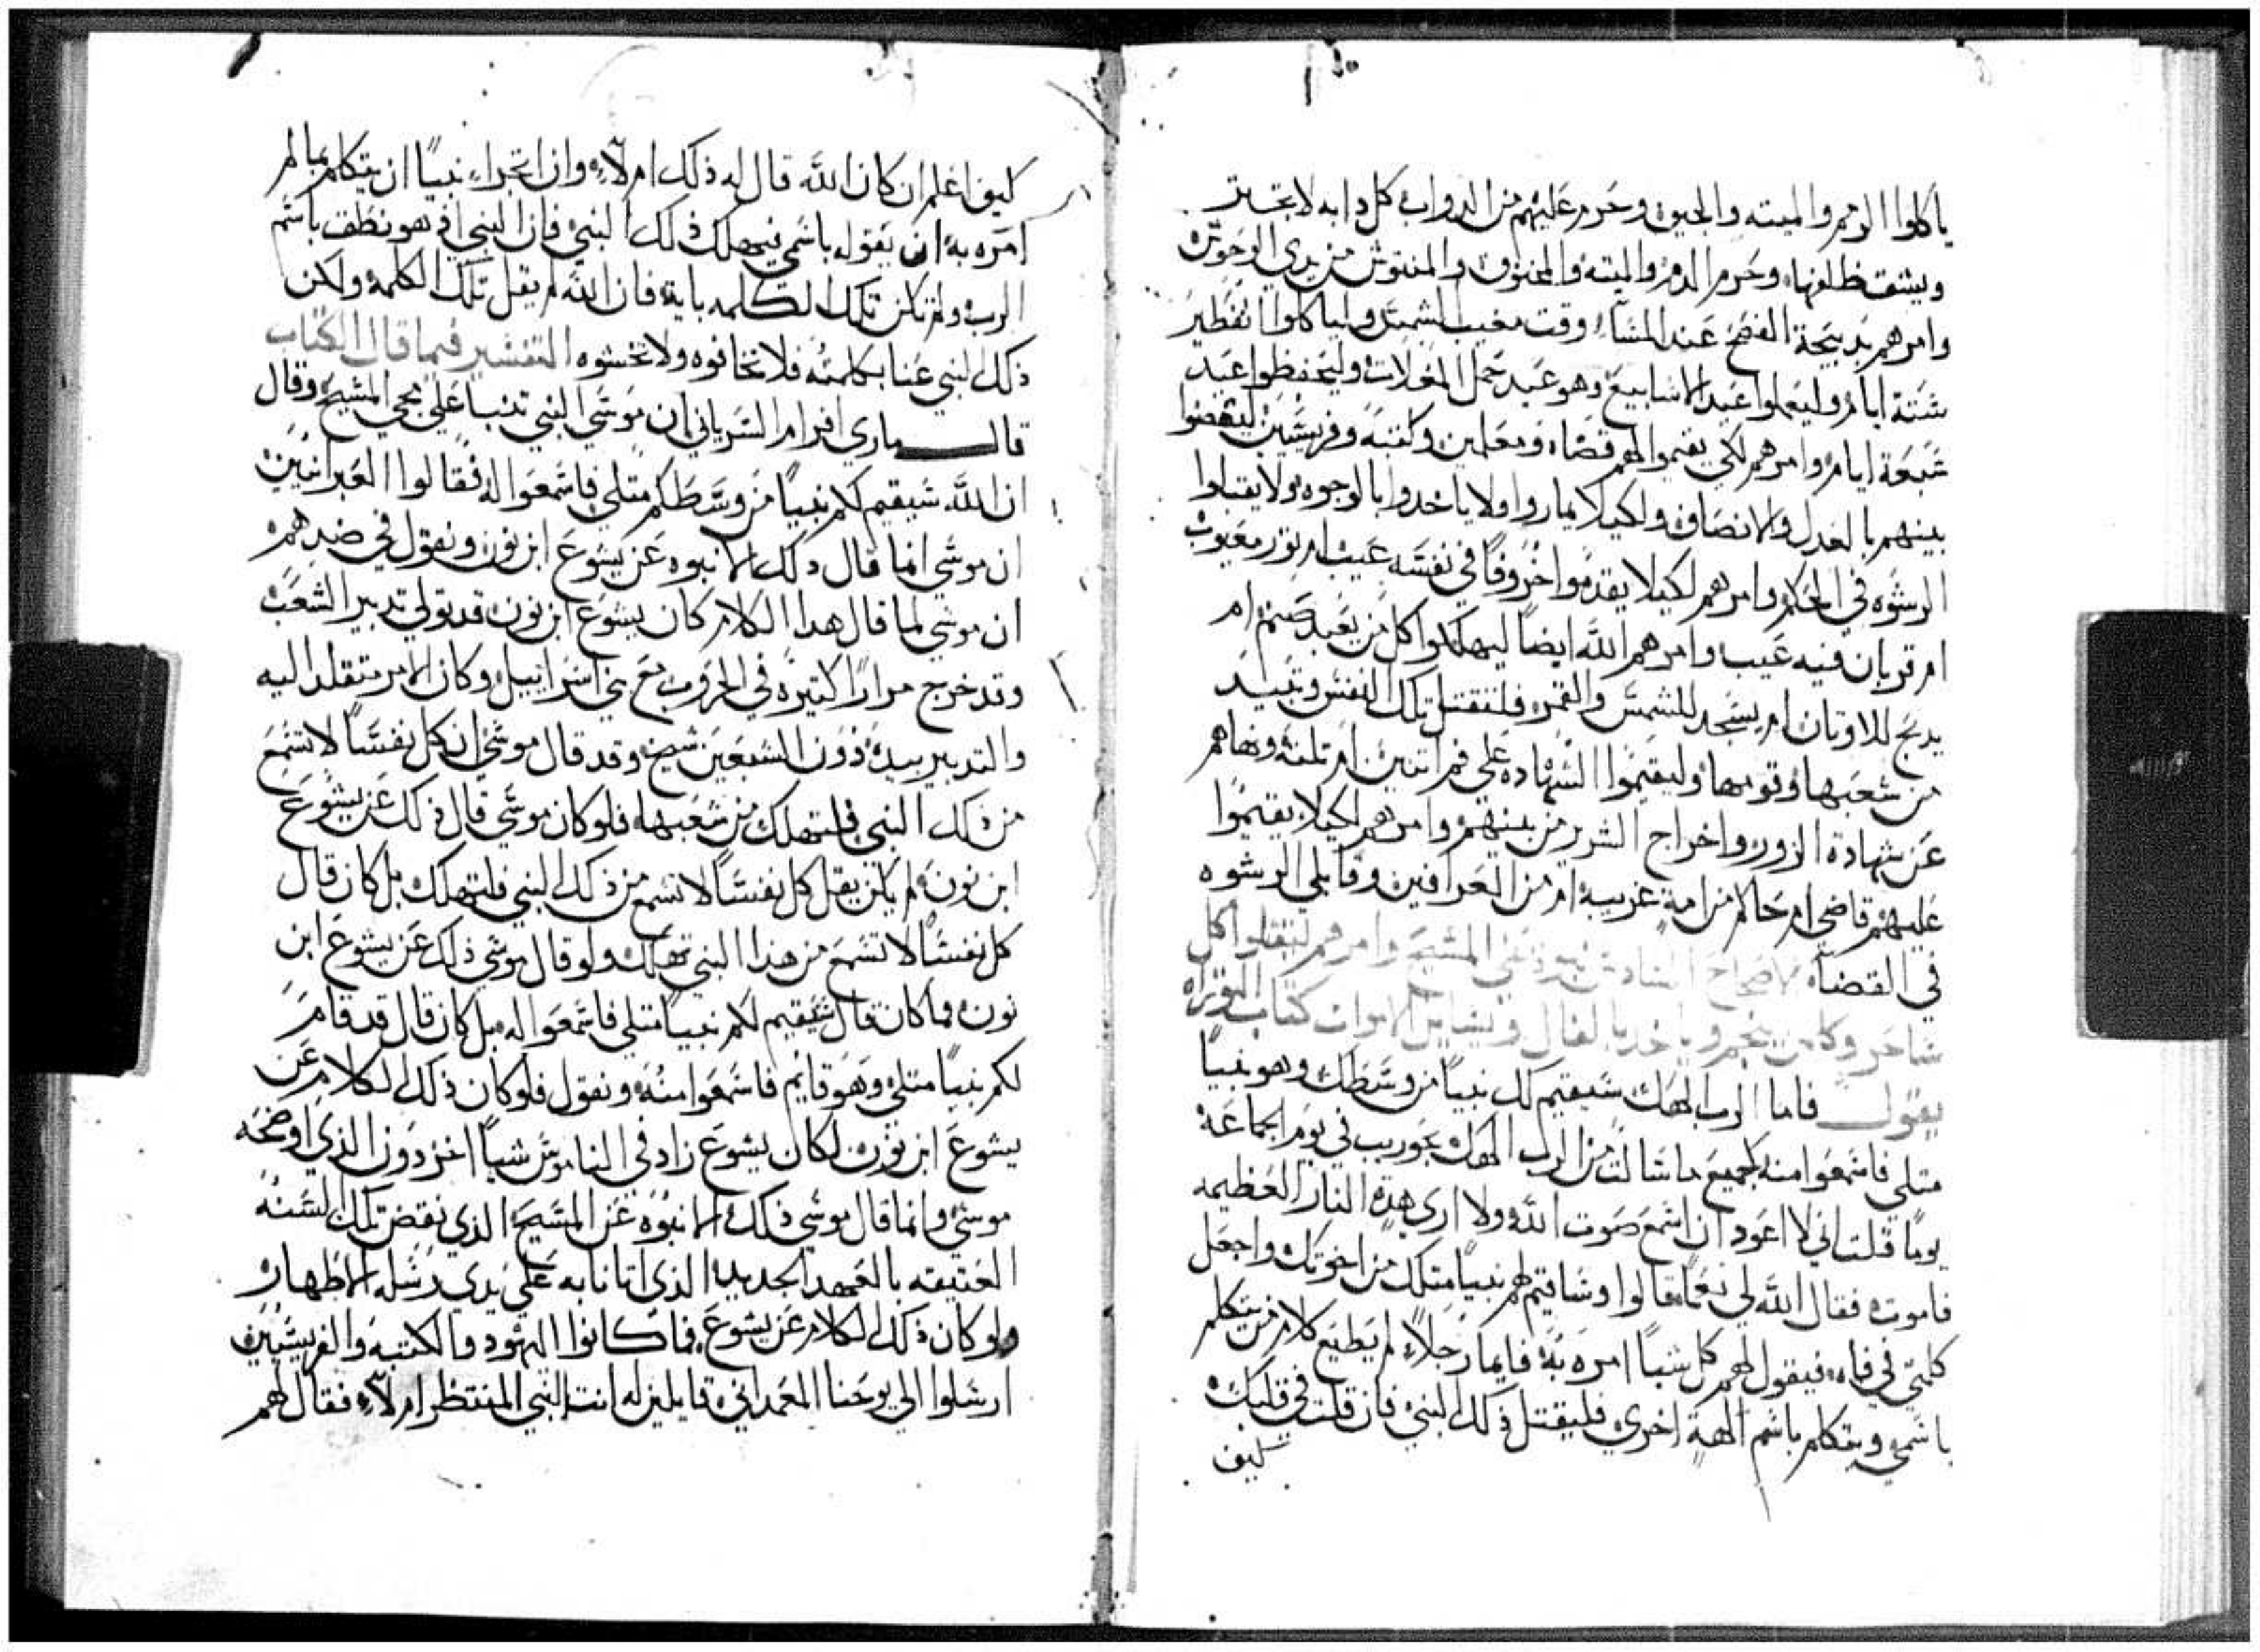 ياكلوا الدم والميته والجيف وحرم عليهم من الدواب كل دابه لا تجتر
ويشتق ظلفها وحرم الدم والميته والمخنوق والمنتوش من يدي الوحوش
وامرهم بدبيحة الفصح عند المسآء وقت مغيب الشمس ولياكلوا الفطير
ستة ايام وليعملوا عيد الاسابيع وهو عيد حمل الغلات وليحفظوا عيد
سبعة ايام وامرهم لكي يقيموا لهم قضاه ومعلمين وكتبه وفريسيين ليقضوا
بينهم بالعدل والانصاف ولكيلا يماروا ولا ياخدوا بالوجوه ولا يقبلوا
الرشوه في الحكم وامرهم لكيلا يقدموا خروفًا في نفسه عيب ام تور معيوب
ام قربان فيه عيب وامرهم الله ايضًا ليهلكوا كل من يعبد صنم ام
يدبح للاوتان ام يسجد للشمس والقمر فلتقتل تلك النفس وتبيد
من شعبها وقومها وليقيموا الشهاده علي فم اتنين ام تلته ونهاهم
عن شهادة الزور واخراج الشرير من بينهم وامرهم لكيلا يقيموا
عليهم قاضي ام حاكم من امة غريبه ام من العرافين وقابلي الرشوه
في القضآه الاصحاح السادس نبوه في المسيح وامرهم ليقتلوا كل
ساحر وكل من ينجم وياخد بالفال ويسايل الاموات كتاب التوراه
يقول فاما الرب الهك سيقيم لك نبيًا من وسطك وهو نبيًا
متلي فاسمعوا منه كجميع ما سالت من الرب الهك بحوريب في يوم الجماعه
يومًا قلت اني لا اعود ان اسمع صوت الله ولا اري هده النار العظيمه
فاموت فقال الله لي نعمًا قالوا وساقيم لهم نبيًا متلك من اخوتك واجعل
كلمتي في فاه فيقول لهم كل شيًا امره به فايما رجلاً لم يطيع كلام من يتكلم
باسمي ويتكلم باسم الهة اخري فليقتل ذلك النبي فان قلت في قلبك
كيف
كيف اعلم ان كان الله قال له ذلك ام لآء وان اتجراء نبيًا ان يتكلم بما لم
امره به ان يقوله باسمي فيهلك ذلك النبي فان النبي اذ هو نطق باسم
الرب ولم تكن تلك الكلمه باية فان الله لم يقل تلك الكلمه ولكن
ذلك النبي عنا بكلمته فلا تخافوه ولا تخشوه التفسير فيما قال الكتاب
قال ماري افرام السرياني ان موسي النبي تنبا علي مجي المسيح وقال
ان الله سيقيم لكم نبيًا من وسطكم متلي فاسمعوا له فقالوا العبرانيين
ان موسي انما قال ذلك الانبوه عن يشوع ابن نون ونقول في ضدهم
ان موسي لما قال هدا الكلام كان يشوع ابن نون قد تولي تدبير الشعب
وقد خرج مرارًا كتيره في الحروب مع بني اسراييل وكان الامر متقلد اليه
والتدبير بيده دون السبعين شيخ وقد قال موسي ان كل نفسًا لا تسمع
من ذلك النبي فلتهلك من شعبها فلو كان موسي قال ذلك عن يشوع
ابن نون لم يكن يقل كل نفسًا لا تسمع من ذلك النبي فلتهلك بل كان قال
كل نفسًا لا تسمع من هذا النبي تهلك ولو قال موسي ذلك عن يشوع ابن
نون فما كان قال سيقيم لكم نبيًا متلي فاسمعوا له بل كان قال قد قام
لكم نبيًا متلي وهو قايم فاسمعوا منه ونقول فلو كان ذلك الكلام عن
يشوع ابن نون لكان يشوع زاد في الناموس شيًا اخر دون الذي اوضحه
موسي وانما قال موسي ذلك الانبوه عن المسيح الذي نقض تلك السنه
العتيقه بالعهد الجديد الذي اتانا به علي يدي رسله الاطهار
ولو كان ذلك الكلام عن يشوع فما كانوا اليهود والكتبه والفريسيين
ارسلوا الي يوحنا المعمداني قايلين له انت النبي المنتظر ام لآء فقال لهم